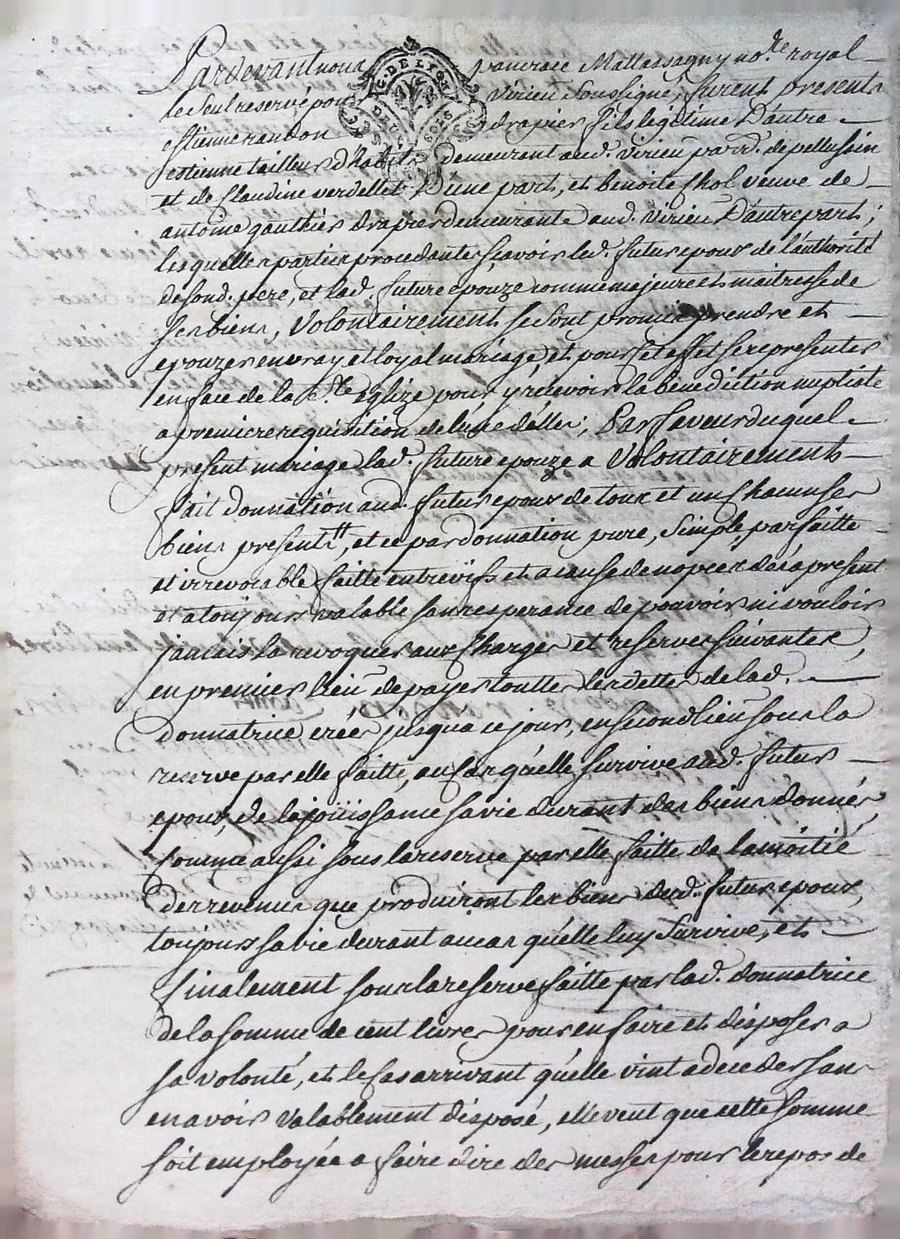 Pardevant nous pancrace Mattassagny no.re royal
le seul reservé pour Virieu soussigné, furent presents
estienne randon drapier fils légitime D'autre
estienne tailleur d'habits Demeurent aud. virieu parr. de pellussin
et de Claudine verdellet D'une part, et benoite Chol veuve de
antoine gauthier drapier demeurante aud. virieu D'autre part;
lesquelles parties procedantes scavoir led. futur epoux de l'authorité
de sond. pere, et lad. future epouze comme majeure et maitresse de
ses biens, Volontairement se sont promis prendre et
epouzer en vray et loyal mariage, et pour cet effet se representer
en face de la S.te églize pour y recevoir la bénédiction nuptiale
a premiere requisition de l'un d'elles; Par faveur duquel
present mariage lad. future epouze a Volontairement
fait donnation aud. futur epoux de tous et un chacun ses
biens presents, et ce par donnation pure, simple, parfaitte
et irrevocable faitte entre vifs et a cause de nopces des a present
et a toujours valable sans esperance de pouvoir ni vouloir
jamais la revoquer aux charges et reserves suivantes,
en premier lieu de payer touttes les dettes de lad.
donnatrice créés jusqua ce jour, en second lieu sous la
reserve par elle faitte, au cas qu'elle survive aud. futur
epoux, de la jouissance sa vie durant des biens donnés
comme aussi sous la reserve par elle faitte de la moitié
des revenus que produiront les biens dud. futur epoux,
toujours sa vie durant au cas qu'elle luy survive, et
finalement sous la reserve faitte par lad. donnatrice
de la somme de cent livres pour en faire et disposer a
sa volonté, et le cas arrivant qu'elle vint a deceder sans
en avoir valablement disposé, elle veut que cette somme
soit employée a faire dire des messes pour le repos de